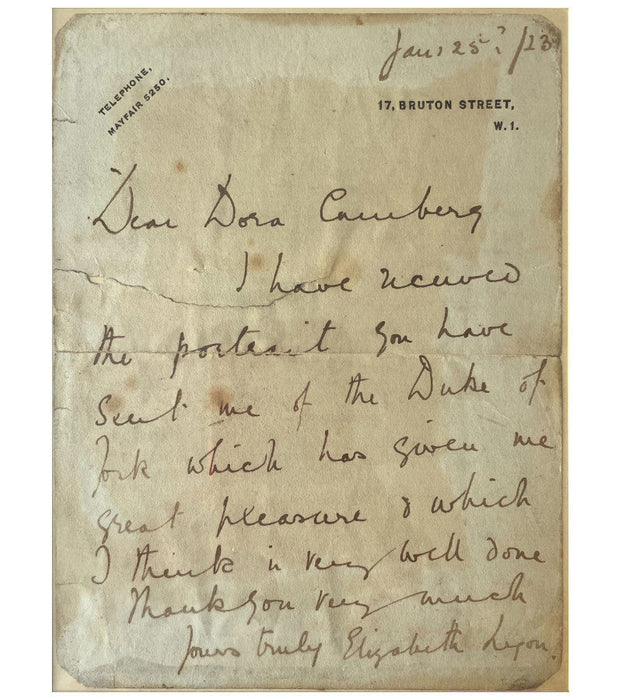 Jan: 25: /23
TELEPHONE,
MAYFAIR 5250.
17, BRUTON STREET,
W.1.
Dear Dora Camberg
I have received
the portrait you have
sent me of the Duke of
York which has given me
great pleasure & which
I think is very well done
Thank you very much
Yours truly Elizabeth Lyon.